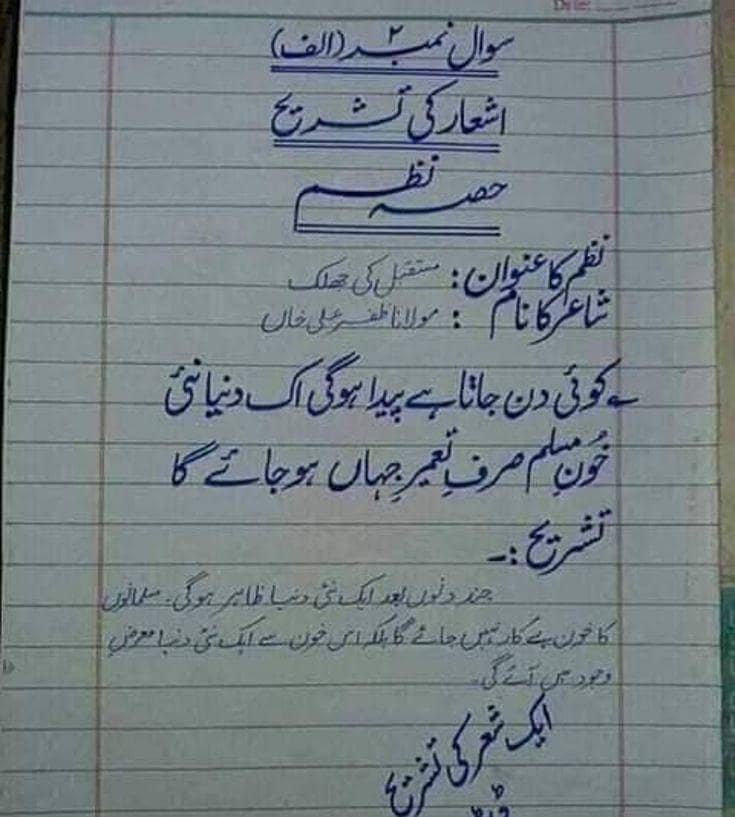 Date:
سوال نمبر ۲ (الف)
اشعار کی تشریح
حصہ نظم
نظم کا عنوان : مستقبل کی جھلک
شاعر کا نام : مولانا ظفر علی خاں
کوئی دن جاتا ہے پیدا ہوگی اک دنیا نئی
خُونِ مسلم صرفِ تعمیرِ جہاں ہو جائے گا
تشریح :-
چند دنوں بعد ایک نئی دنیا ظاہر ہوگی۔ مسلمانوں
کا خون بے کار نہیں جائے گا بلکہ اس خون سے ایک نئی دنیا معرضِ
وجود میں آئے گی۔
ایک شعر کی تشریح